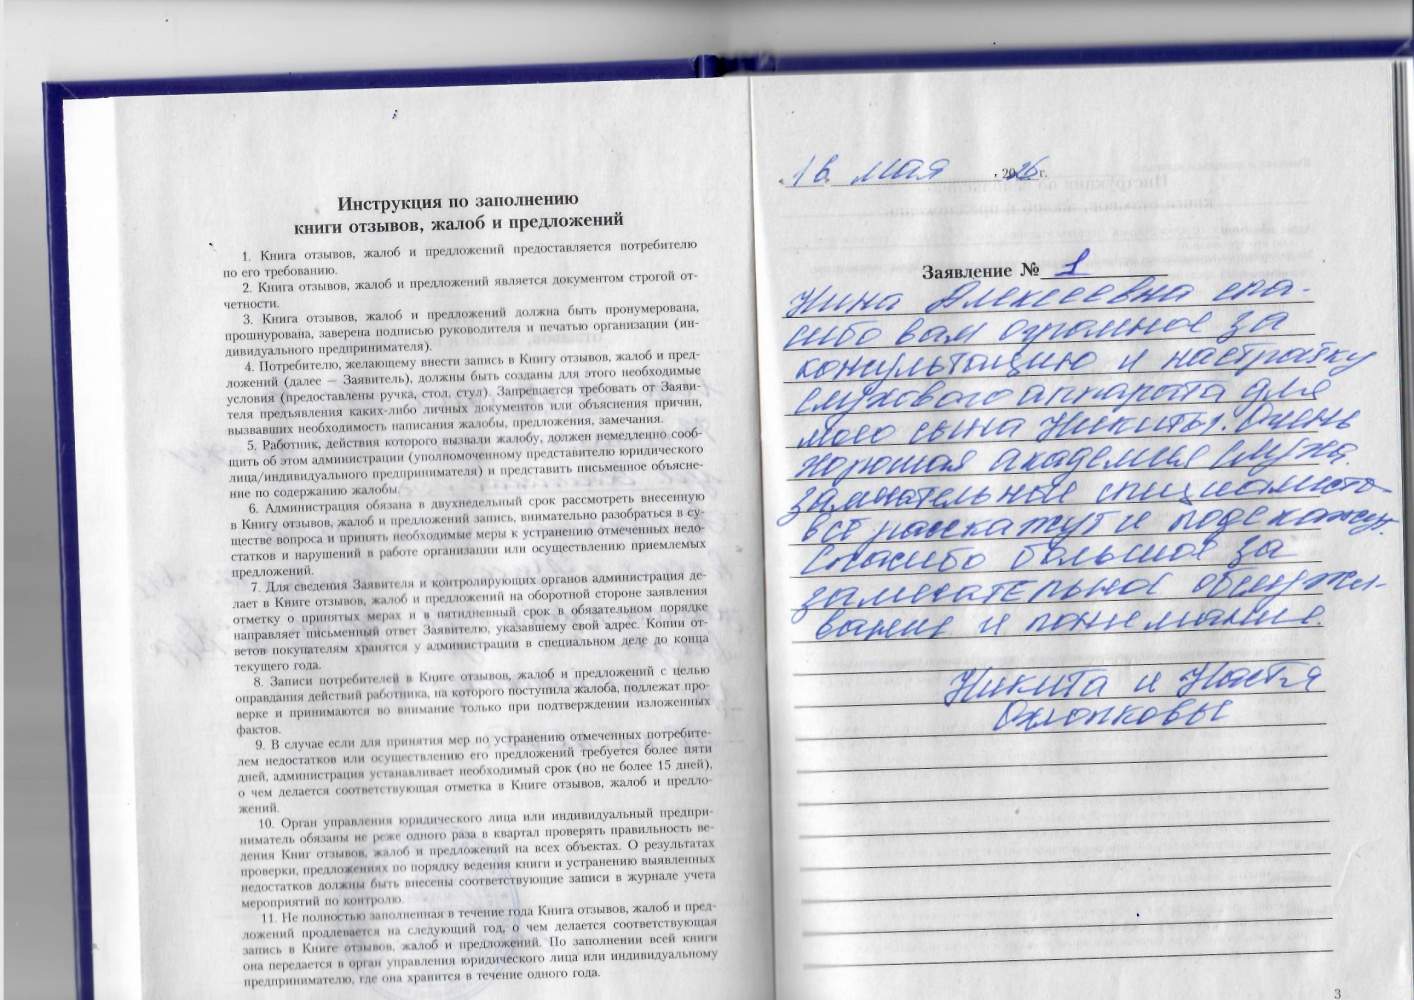 Инструкция по заполнению
книги отзывов, жалоб и предложений
1. Книга отзывов, жалоб и предложений предоставляется потребителю
по его требованию.
2. Книга отзывов, жалоб и предложений является документом строгой от-
четности.
3. Книга отзывов, жалоб и предложений должна быть пронумерована,
прошнурована, заверена подписью руководителя и печатью организации (ин-
дивидуального предпринимателя).
4. Потребителю, желающему внести запись в Книгу отзывов, жалоб и пред-
ложений (далее – Заявитель), должны быть созданы для этого необходимые
условия (предоставлены ручка, стол, стул). Запрещается требовать от Заяви-
теля предъявления каких-либо личных документов или объяснения причин,
вызвавших необходимость написания жалобы, предложения, замечания.
5. Работник, действия которого вызвали жалобу, должен немедленно сооб-
щить об этом администрации (уполномоченному представителю юридического
лица/индивидуального предпринимателя) и представить письменное объясне-
ние по содержанию жалобы.
6. Администрация обязана в двухнедельный срок рассмотреть внесенную
в Книгу отзывов, жалоб и предложений запись, внимательно разобраться в су-
ществе вопроса и принять необходимые меры к устранению отмеченных недо-
статков и нарушений в работе организации или осуществлению приемлемых
предложений.
7. Для сведения Заявителя и контролирующих органов администрация де-
лает в Книге отзывов, жалоб и предложений на оборотной стороне заявления
отметку о принятых мерах и в пятидневный срок в обязательном порядке
направляет письменный ответ Заявителю, указавшему свой адрес. Копии от-
ветов покупателям хранятся у администрации в специальном деле до конца
текущего года.
8. Записи потребителей в Книге отзывов, жалоб и предложений с целью
оправдания действий работника, на которого поступила жалоба, подлежат про-
верке и принимаются во внимание только при подтверждении изложенных
фактов.
9. В случае если для принятия мер по устранению отмеченных потребите-
лем недостатков или осуществлению его предложений требуется более пяти
дней, администрация устанавливает необходимый срок (но не более 15 дней),
о чем делается соответствующая отметка в Книге отзывов, жалоб и предло-
жений.
10. Орган управления юридического лица или индивидуальный предпри-
ниматель обязаны не реже одного раза в квартал проверять правильность ве-
дения Книг отзывов, жалоб и предложений на всех объектах. О результатах
проверки, предложениях по порядку ведения книги и устранению выявленных
недостатков должны быть внесены соответствующие записи в журнале учета
мероприятий по контролю.
11. Не полностью заполненная в течение года Книга отзывов, жалоб и пред-
ложений продлевается на следующий год, о чем делается соответствующая
запись в Книге отзывов, жалоб и предложений. По заполнении всей книги
она передается в орган управления юридического лица или индивидуальному
предпринимателю, где она хранится в течение одного года.
«16» мая 2026 г.
Заявление № 1
Нина Алексеевна спа-
сибо вам огромное за
консультацию и настройку
слухового аппарата для
моего сына Никиты. Очень
хорошая академия слуха.
замечательные специалисты
всё расскажут и подскажут.
Спасибо большое за
замечательное обслужи-
вание и понимание.
Никита и Настя
Охлопковы
3